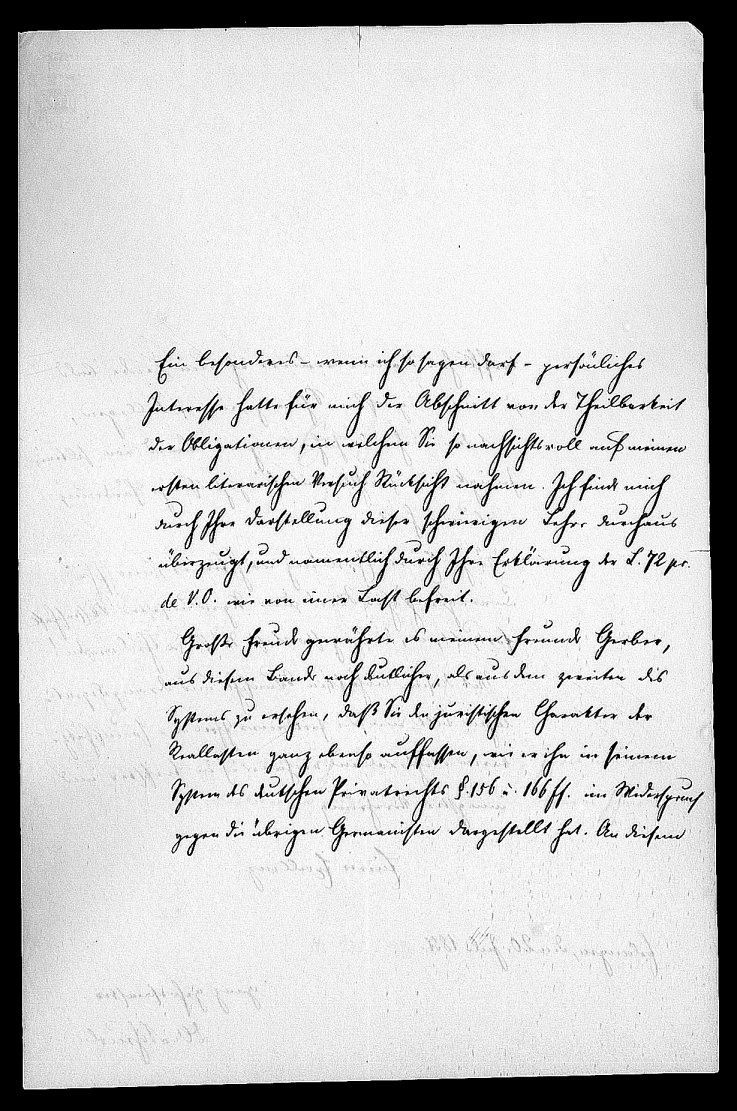 Ein besonderes – wenn ich so sagen darf – persönliches
Interesse hatte für mich der Abschnitt von der Theilbarkeit
der Obligationen, in welchem Sie so nachsichtsvoll auf meinen
ersten literarischen Versuch Rücksicht nahmen. Ich finde mich
durch Ihre Darstellung dieser schwierigen Lehre durchaus
überzeugt, und namentlich durch Ihre Erklärung der L. 72 pr.
de V. O. wie von einer Last befreit.
Große Freude gewährte es meinem Freunde Gerber,
aus diesem Bande noch deutlicher, als aus dem zweiten des
Systems zu ersehen, daß Sie den juristischen Charakter der
Reallasten ganz ebenso auffassen, wie er ihn in seinem
System des deutschen Privatrechts § 156 u. 166 ff. im Widerspruch
gegen die übrigen Germanisten dargestellt hat. An diesem